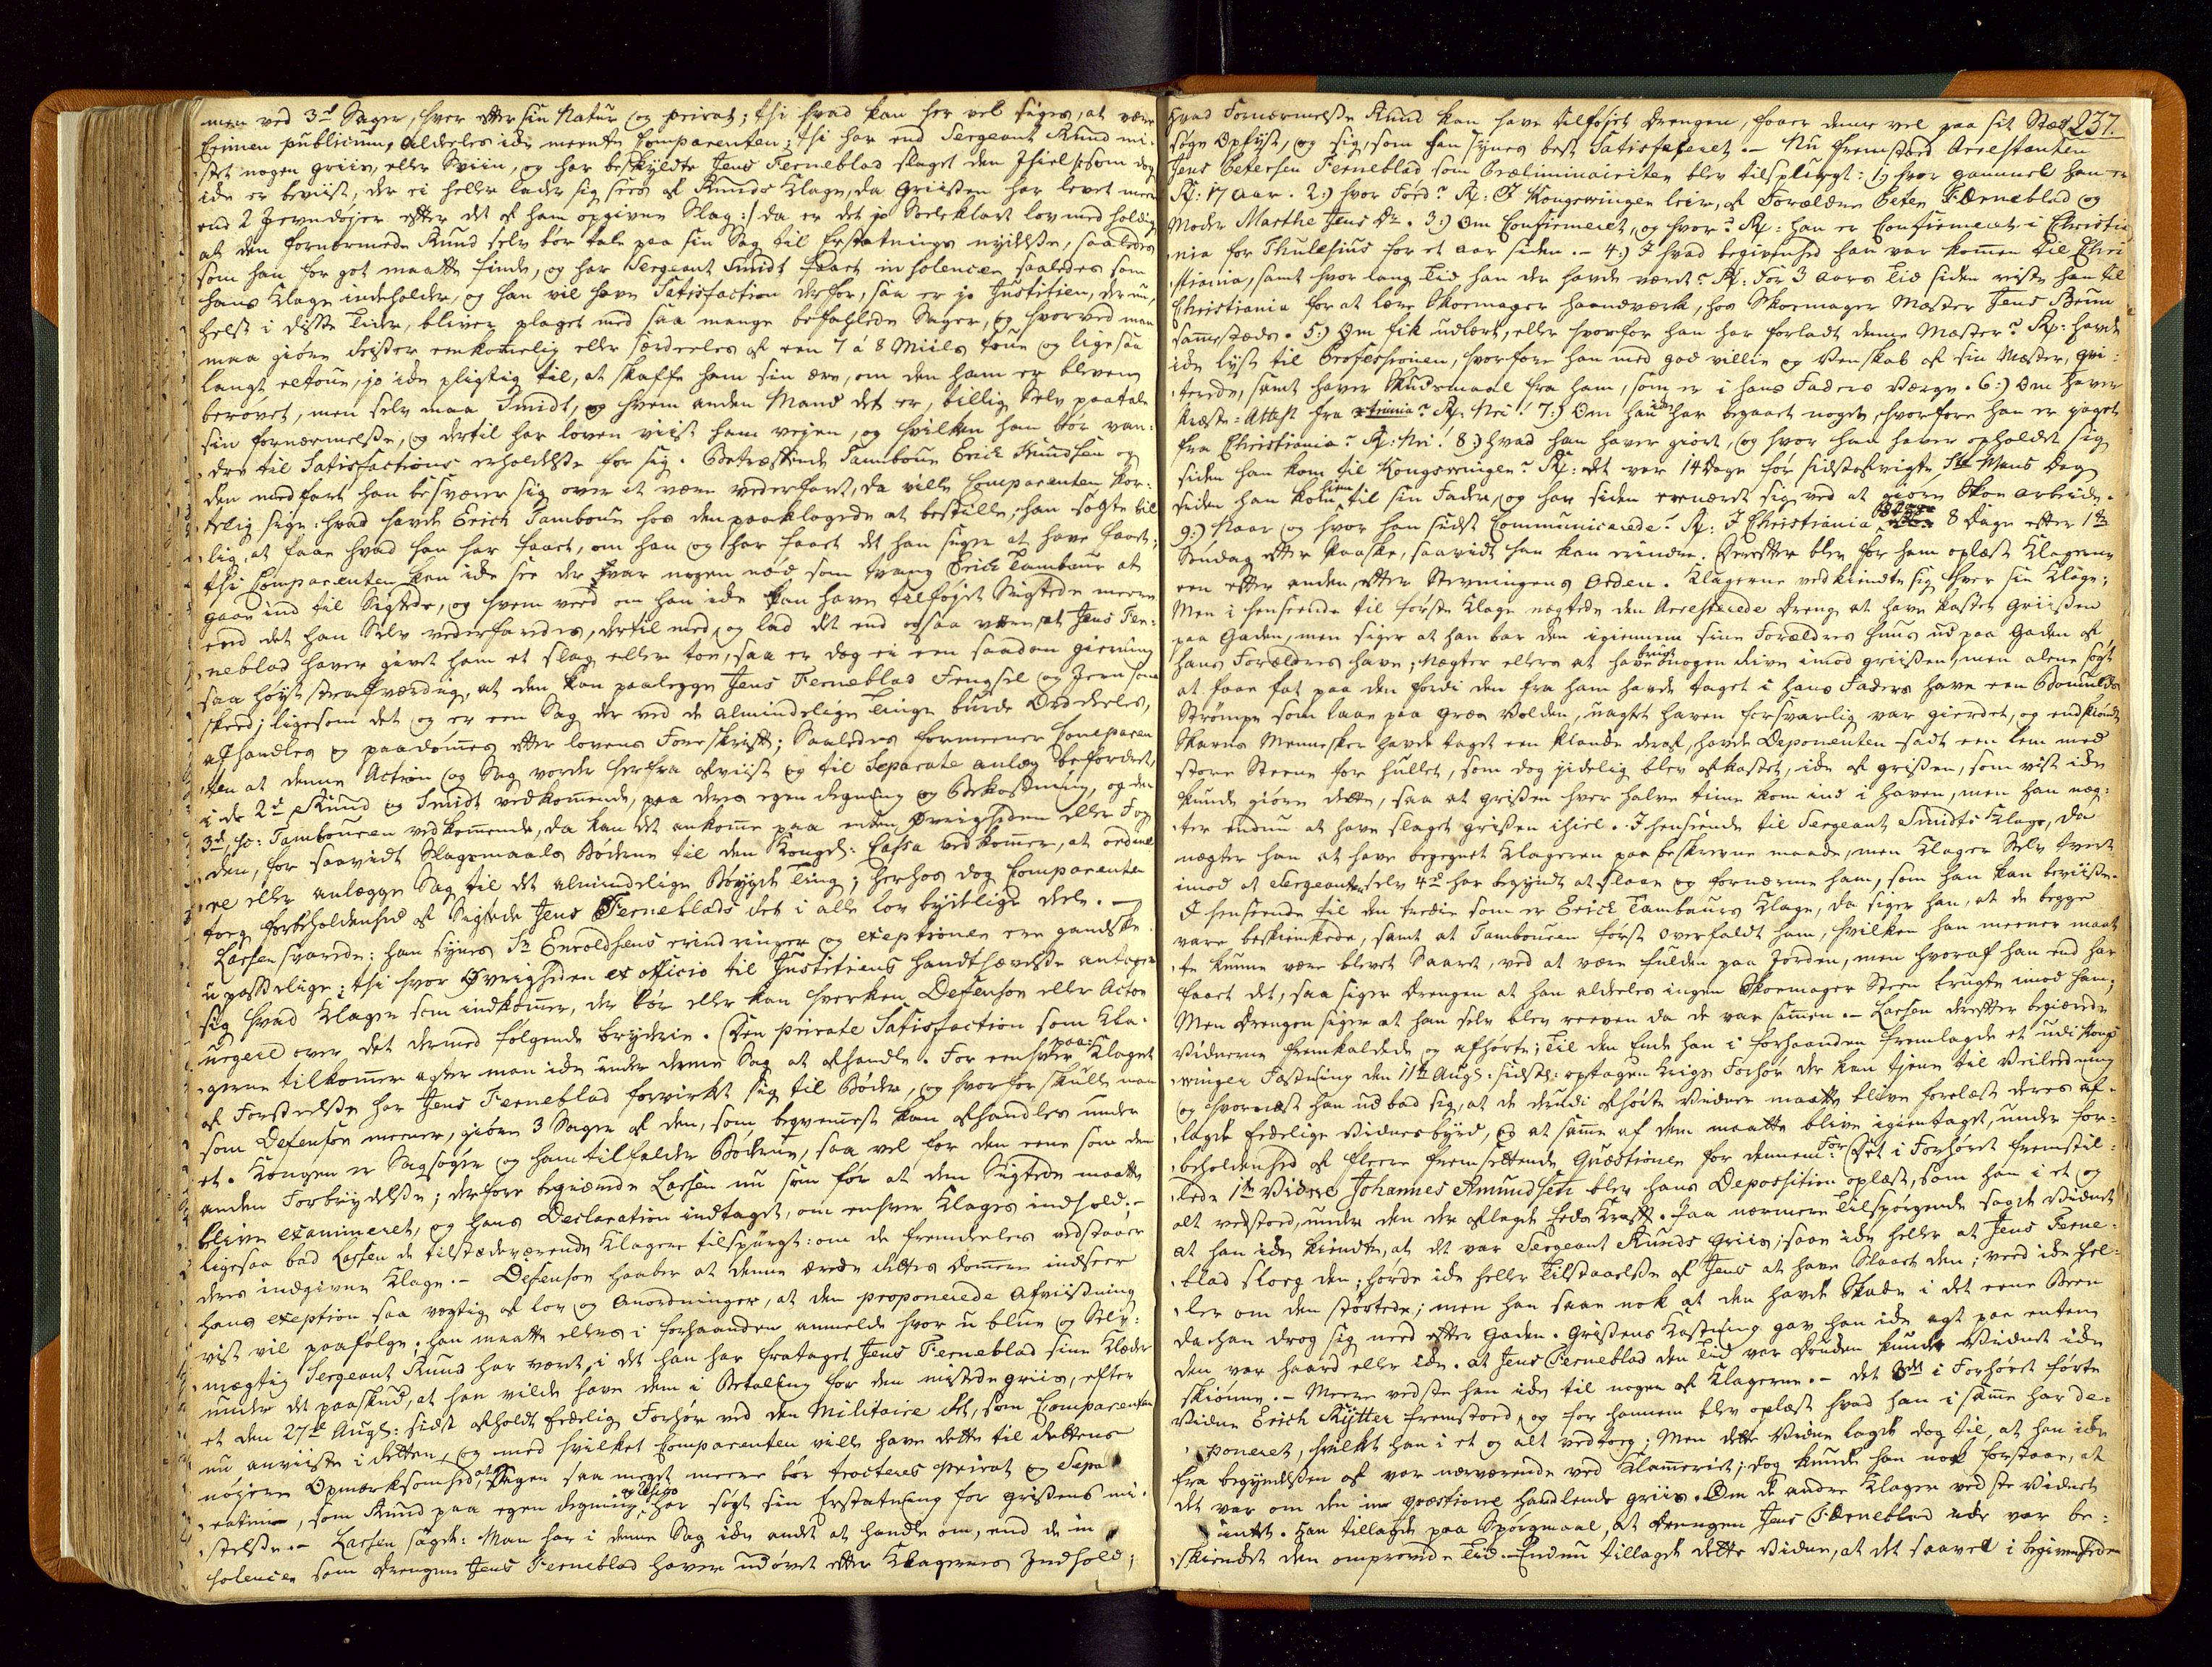 men ved 3de Sager, hver efter sin Natur og privat; thi hvad kan her vel siges, at være
Crimen publicum, alderles ide meente Comparenten; thi har end Sergeant Knud mi-
stet nogen griis, eller Sviin, og har beskyldte Jens Ferneblad slaget den Ihiel /: som dog
ide er beviist, der ei heller lader sig see af Knuds Klage, da Griisen har levet meere
end 2 Jevndøger efter det af ham opgivne Slag :/ da er det jo Soleklart lov med holdig
at den fornermede Knud selv bør tale paa sin Sag til Erstatnings nydelse, saaledes
som han for got maatte finde, og har Sergeant Smidt faaet insolencer saaledes som
hans Klage indeholder, og han vil have Satisfaction derfor, saa er jo Justitien, der nu,
helst i disse Tider, bliver plaget med saa mange befahlede Sager, og hvorved man
maa giøre Reiser eenkomelig eller særdeeles af een 7 á 8 Miils toure og ligesaa
langt retoure, jo ide pligtig til, at skaffe ham sin ære, om den ham er bleven
berøvet, men selv maa Smidt, og hvem anden Mand det er, billig Selv paatale
sin fornærmelse, og dertil har loven viist ham vejen, og hvilken han bør van-
dre til Satisfactions erholdelse for sig. Betræffende Tambour Erick Knudsen og
den medfart han besværer sig over at være vederfaret, da ville Comparenten kor-
telig sige: hvad havde Erich Tambour hos den paaklagede at bestille, han søgte vil-
lig, at faae hvad han har faaet, om han og har faaet det han siger at have faaet;
thi Comparenten kan ide see der var nogen nød som tvang Erick Tambour at
gaae ind til Sigtede, og hvem veed om han ide kan have tilføjet Sigtede meere
end det han Selv vederfaredes, dertil med, og lad det end ogsaa være, at Jens Fer-
neblad haver givet ham et slag eller toe, saa er dog ei een saadan gierning
saa højst strafværdig, at den kan paalegge Jens Ferneblad Fengsel og Jern som
skeed; ligesom det og er een Sag der ved de almindelige Tinge burde Orddeeles,
afhandles og paadømmes efter lovens Foreskrift; Saaledes formeener Comparen-
ten at denne Action og Sag vorder herfra afviist og til Separate anlæg befordret,
i de 2de Knud og Smidt vedkommende, paa deres egen Regning og Bekostning, og den
3de, so: Tambouren vedkommende, da kan det ankomme paa enten Øvrigheden eller Fog-
den, for saavidt Slagsmaals Bøderne til den Kongel: Cassa vedkommer, at ordine-
re eller anlægge Sag til det almindelige Bøygde Ting; herhos dog Comparenten
toeg forbeholdenhed af Sigtede Jens Ferneblads Ret i alle lovbydelige deele. —
Larsen svarede: han synes Sr Enroldsens erindringer og exceptioner ere gandske
upasselige; thi hvor Øvrigheden ex officio til Justitiens handthævelse antager
sig hvad Klager som indkommer, der bør eller kan hverken Defensor eller Actor
neegere over det dermed følgende bryderie. Den private Satisfaction som Kla-
gerne tilkommer agter man ide under denne Sag at afhandle. For eenhver paa-Klaget
af Forseelse har Jens Ferneblad forvirket sig til Bøder, og hvorfor skulle man
som Defensor meener, giøre 3 Sager af den, som beqvemmest kan afhandles under
et. Kongen er Sagsøger og ham tilfalder Bøderne, saa vel for den eene som den
anden Forbrydelse; derfore begiærede Larsen nu som før at den Sigtede maatte
blive examineret, og hans Declaration indtaget, om enhver Klages indhold; —
ligesaa bad Larsen de tilstædeværende Klagere tilspurgt: om de fremdeeles vedstaaer
deres indgivne Klage. — Defensor haaber at denne ærede Rettes dommer indseer
hans exception saa vegtig af lov og Anordninger, at den proponerede Afviisning
vist vil paafølge; han maatte ellers i forhaanden anmelde hvor u blue og Selv-
mægtig Sergeant Knud har været, i det han har frataget Jens Ferneblad sine Klæder
under det paaskud, at han vilde have dem i Betaling for den mistede griis, efter
et den 27de Augs: sidst afholdt Eedelig Forhør ved den Militaire Ret, som Comparenten
nu anviiste i Retten, og med hvilket Comparenten ville have dette til Rettens
nøjere Opmærksomhed, at Sagen saa meget meere bør tracteres privat og Sepa-
ratim, som Knud paa egen Regning og Risico har søgt sin Erstatning for grisens mi-
stelse. — Larsen sagde: Man har i denne Sag ide andet at handle om, end de in-
solencer som Drengen Jens Ferneblad haver udøvet efter Klagernes Indhold;
237.
hvad Fornærmelse Knud kan have tilføjet Drengen, faaer denne vel paa sit Sted
søge Oplyst, og sig, som han synes best Satisfaceret. — Nu fremstoed Arrestanten
Jens Petersen Ferneblad som Præliminariter blev tilspurgt: 1) hvor gammel han er
Rp: 17 aar. 2:) hvor Fød? Rp: I Kongswingers leir, af Forældre Peter Ferneblad og
Moder Marthe Jens dr. 3:) Om Confirmeret, og hvor? Rp: han er Confirmeret i Christia
nia for Thulesius for et aar siden. — 4:) I hvad begivenhed han var kommen til Chri-
stiania, samt hvor lang Tid han der havde været? Rp: For 3 Aars Tid siden reiste han til
Christiania for at lære Skoemager haandværk, hos Skoemager Mæster Jens Bruun
sammestæds. 5) Om fik udlært, eller hvorfor han har forladt denne Mæster? Rp: havde
ide lyst til Professionen, hvorfore han med god villie og Venskab af sin Mæster, qvi-
terede, samt haver Skudsmaal fra ham, som er i hans Faders Værge. 6:) Om haver
Præste-Attest fra Xtiania? Rp. Nei! 7:) Om han ide har begaaet noget, hvorfore han er jaget
fra Christiania? Rp: Nei! 8) hvad han haver giort, og hvor han haver opholdet sig
siden han kom til Kongswinger? Rp: det var 14 Dage før sidstafvigte, Ste Hans dag
siden han kom hiem til sin Fader, og har siden ernæret sig ved at giøre Skoe arbeide.
9:) Naar og hvor han sidst Communicerede? Rp: I Christiania 8 Dage efter 1ste
Søndag efter Paaske, saavidt han kan erindre. Derefter blev for ham oplæst Klagerne
een efter anden, efter Stevningens Orden. Klagerne vedkiendte sig hver sin Klage;
Men i henseende til første Klage nægtede den Arresterede Dreng at have kastet Griisen
paa Gaden, men siger at han bar den igiennem sine Forældres huus ud paa Gaden af
hans Forældres have; Nægter ellers at have brugt nogen Kniv imod griisen, men alene søgt
at faae fat paa den fordi den fra ham havde taget i hans Faders have een Bomulds
Strømpe som laae paa græs Volden, uagtet haven forsvarlig var gierdet, og endskiøndt
Skarns Mennesker havde taget een klande deraf, havde Deponenten sadt een lem med
store Steene for hullet, som dog jidelig blev afkastet, ide af grisen, som vist ide
kunde giøre dette, saa at grisen hver halve time kom ind i haven, men han næg-
ter endnu at have slaget grisen ihiel. I henseende til Sergeant Smidts Klage, da
nægter han at have begegnet Klageren paa beskrevne maade, men Klager Selv tvert
imod at Sergeanten selv 4de har begyndt at slaae og fornærme ham, som han kan beviise.
I henseende til den tredie som er Erick Tambours Klage, da siger han, at de begge
vare beskienkede, samt at Tambouren først Overfaldt ham, hvilken han meener maat-
te kunne være blevet Saaret, ved at være fulden paa Jorden, men hvoraf han end har
faaet det, saa siger Drengen at han aldeeles ingen Skoemager Steen brugte imod ham;
Men Drengen siger at han selv blev reeven da de var sammen. — Larsen derefter begiærede
Vidnerne fremkaldede og afhørte; Til den Ende han i forhaanden fremlagde et udi Kongs-
winger Fæstning den 11te Augs: sidstl: optagen Krigs Forhør der kan tjene til Veiledning
og hvornæst han udbad sig, at de derudi afhørte Vidner maatte blive forelæst deres af-
lagde Eedelige Vidnesbyrd, og at samme af dem maatte blive igientaget, under for-
beholdenhed af fleere fremsettende Qvæstioner for dennem. Det i Forhøret fremstil-
lede 1te Vidne Johannes Amundsen blev hans Deposition oplæst, som han i et og
alt vedstoed, under den der aflagde Eeds Kraft. Paa nærmere tilspørgende sagde Vidnet
at han ide kiendte, at det var Sergeant Knuds griis; saae ide heller at Jens Ferne-
blad sloeg den; hørde ide heller Tilstaaelse af Jens at have Slaaet den; veed ide hel-
ler om den støttede; men han saae nok at den havde Skade i det eene Been
da han drog sig ned efter Gaden. Grisens Kastning gav han ide agt paa enten
den var haard eller ide. at Jens Ferneblad den tid var drukken kunde Vidnet ide
skiønne. — Meere vedste han ide til nogen af Klagerne. — Det 3de i Forhøret førte
Vidne Erich Rytter fremstoed, og for hannem blev oplæst hvad han i samme har de-
poneret, hvilket han i et og alt vedtoeg; Men dette Vidne lagde dog til, at han ide
fra begyndelsen af var nærværende ved Klammeriet; dog kunde han nok forstaae, at
det var om den in qvæstione handlende griis. Om de andre Klager vedste Vidnet
intet. Han tillagde paa Spørgsmaal, at Drengen Jens Ferneblad ide var be-
skienket den omprovede tid. Endnu tillagde dette Vidne, at det saavel i begivenheden